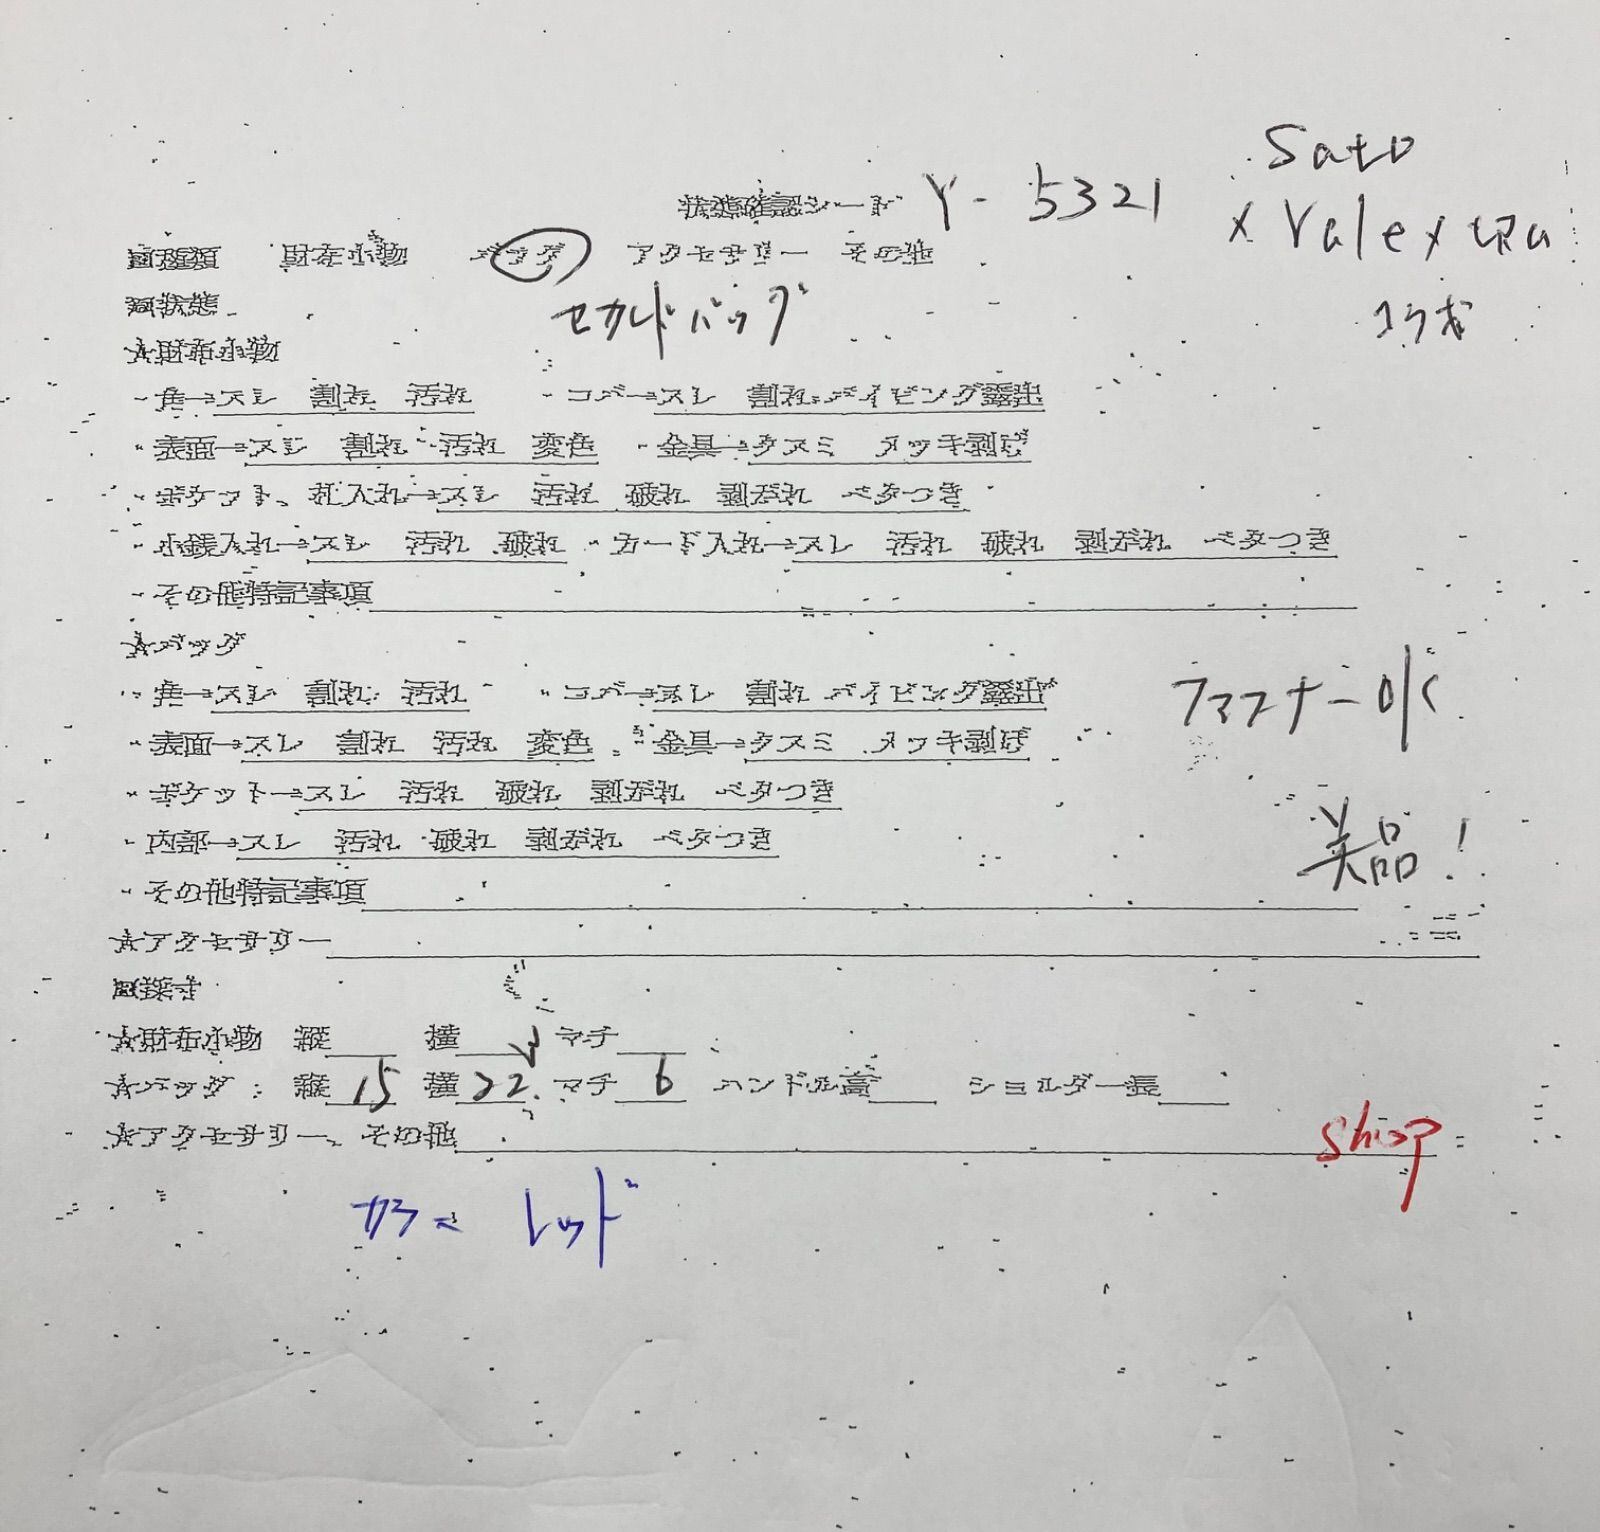 Sato
状態確認シート Y-5321 × Valextra
種類 財布小物 バッグ アクセサリー その他
状態 セカンドバッグ コラボ
☆財布小物
・角→スレ 割れ 汚れ ・コバ→スレ 割れ パイピング露出
・表面→スレ 割れ 汚れ 変色 ・金具→クスミ メッキ剥げ
・ポケット、札入れ→スレ 汚れ 破れ 剥がれ ベタつき
・小銭入れ→スレ 汚れ 破れ ・カード入れ→スレ 汚れ 破れ 剥がれ ベタつき
・その他特記事項
☆バッグ
・角→スレ 割れ 汚れ ・コバ→スレ 割れ パイピング露出 ファスナーOK
・表面→スレ 割れ 汚れ 変色 ・金具→クスミ メッキ剥げ
・ポケット→スレ 汚れ 破れ 剥がれ ベタつき
・内部→スレ 汚れ 破れ 剥がれ ベタつき 美品!
・その他特記事項
☆アクセサリー
採寸
☆財布小物 縦 横 マチ
☆バッグ: 縦 15 横 22 マチ 6 ハンドル高 ショルダー長
☆アクセサリー、その他 shop
カラー レッド